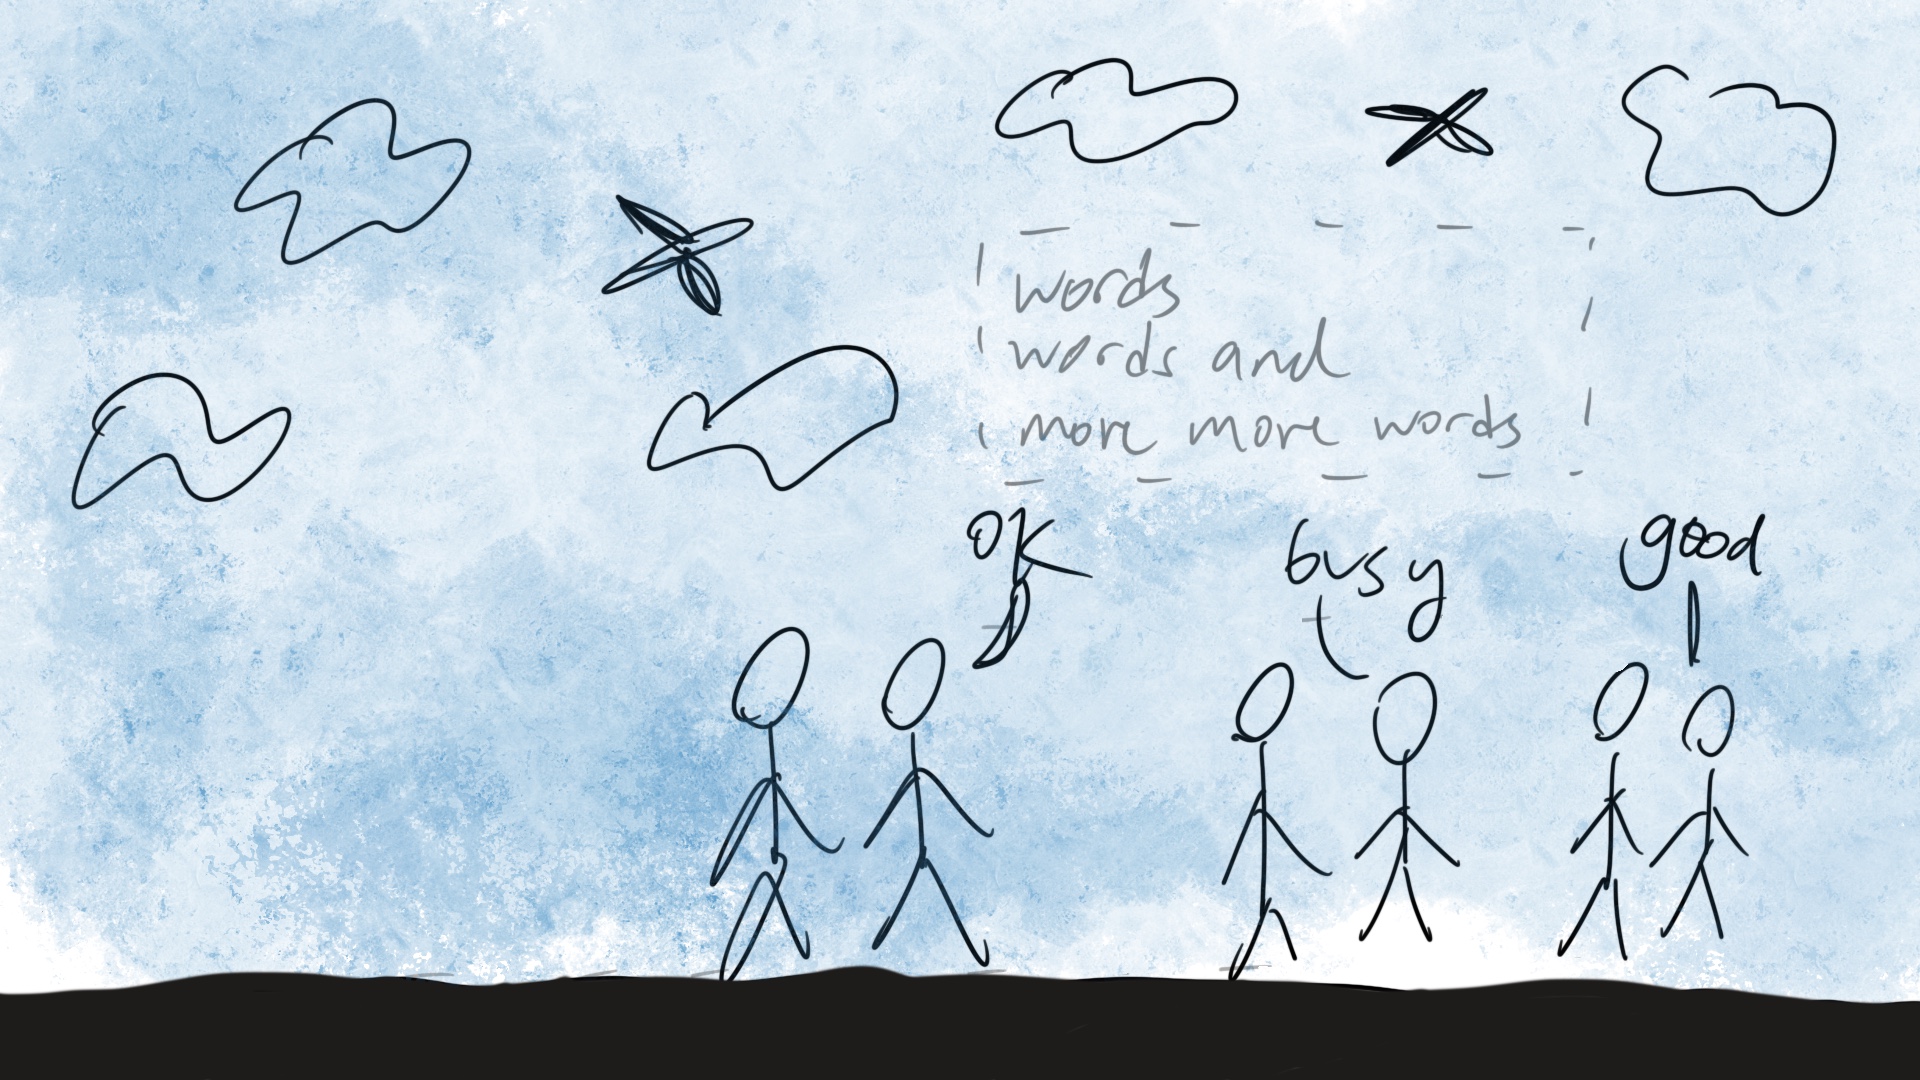 words
words and
more more words
OK
busy
good